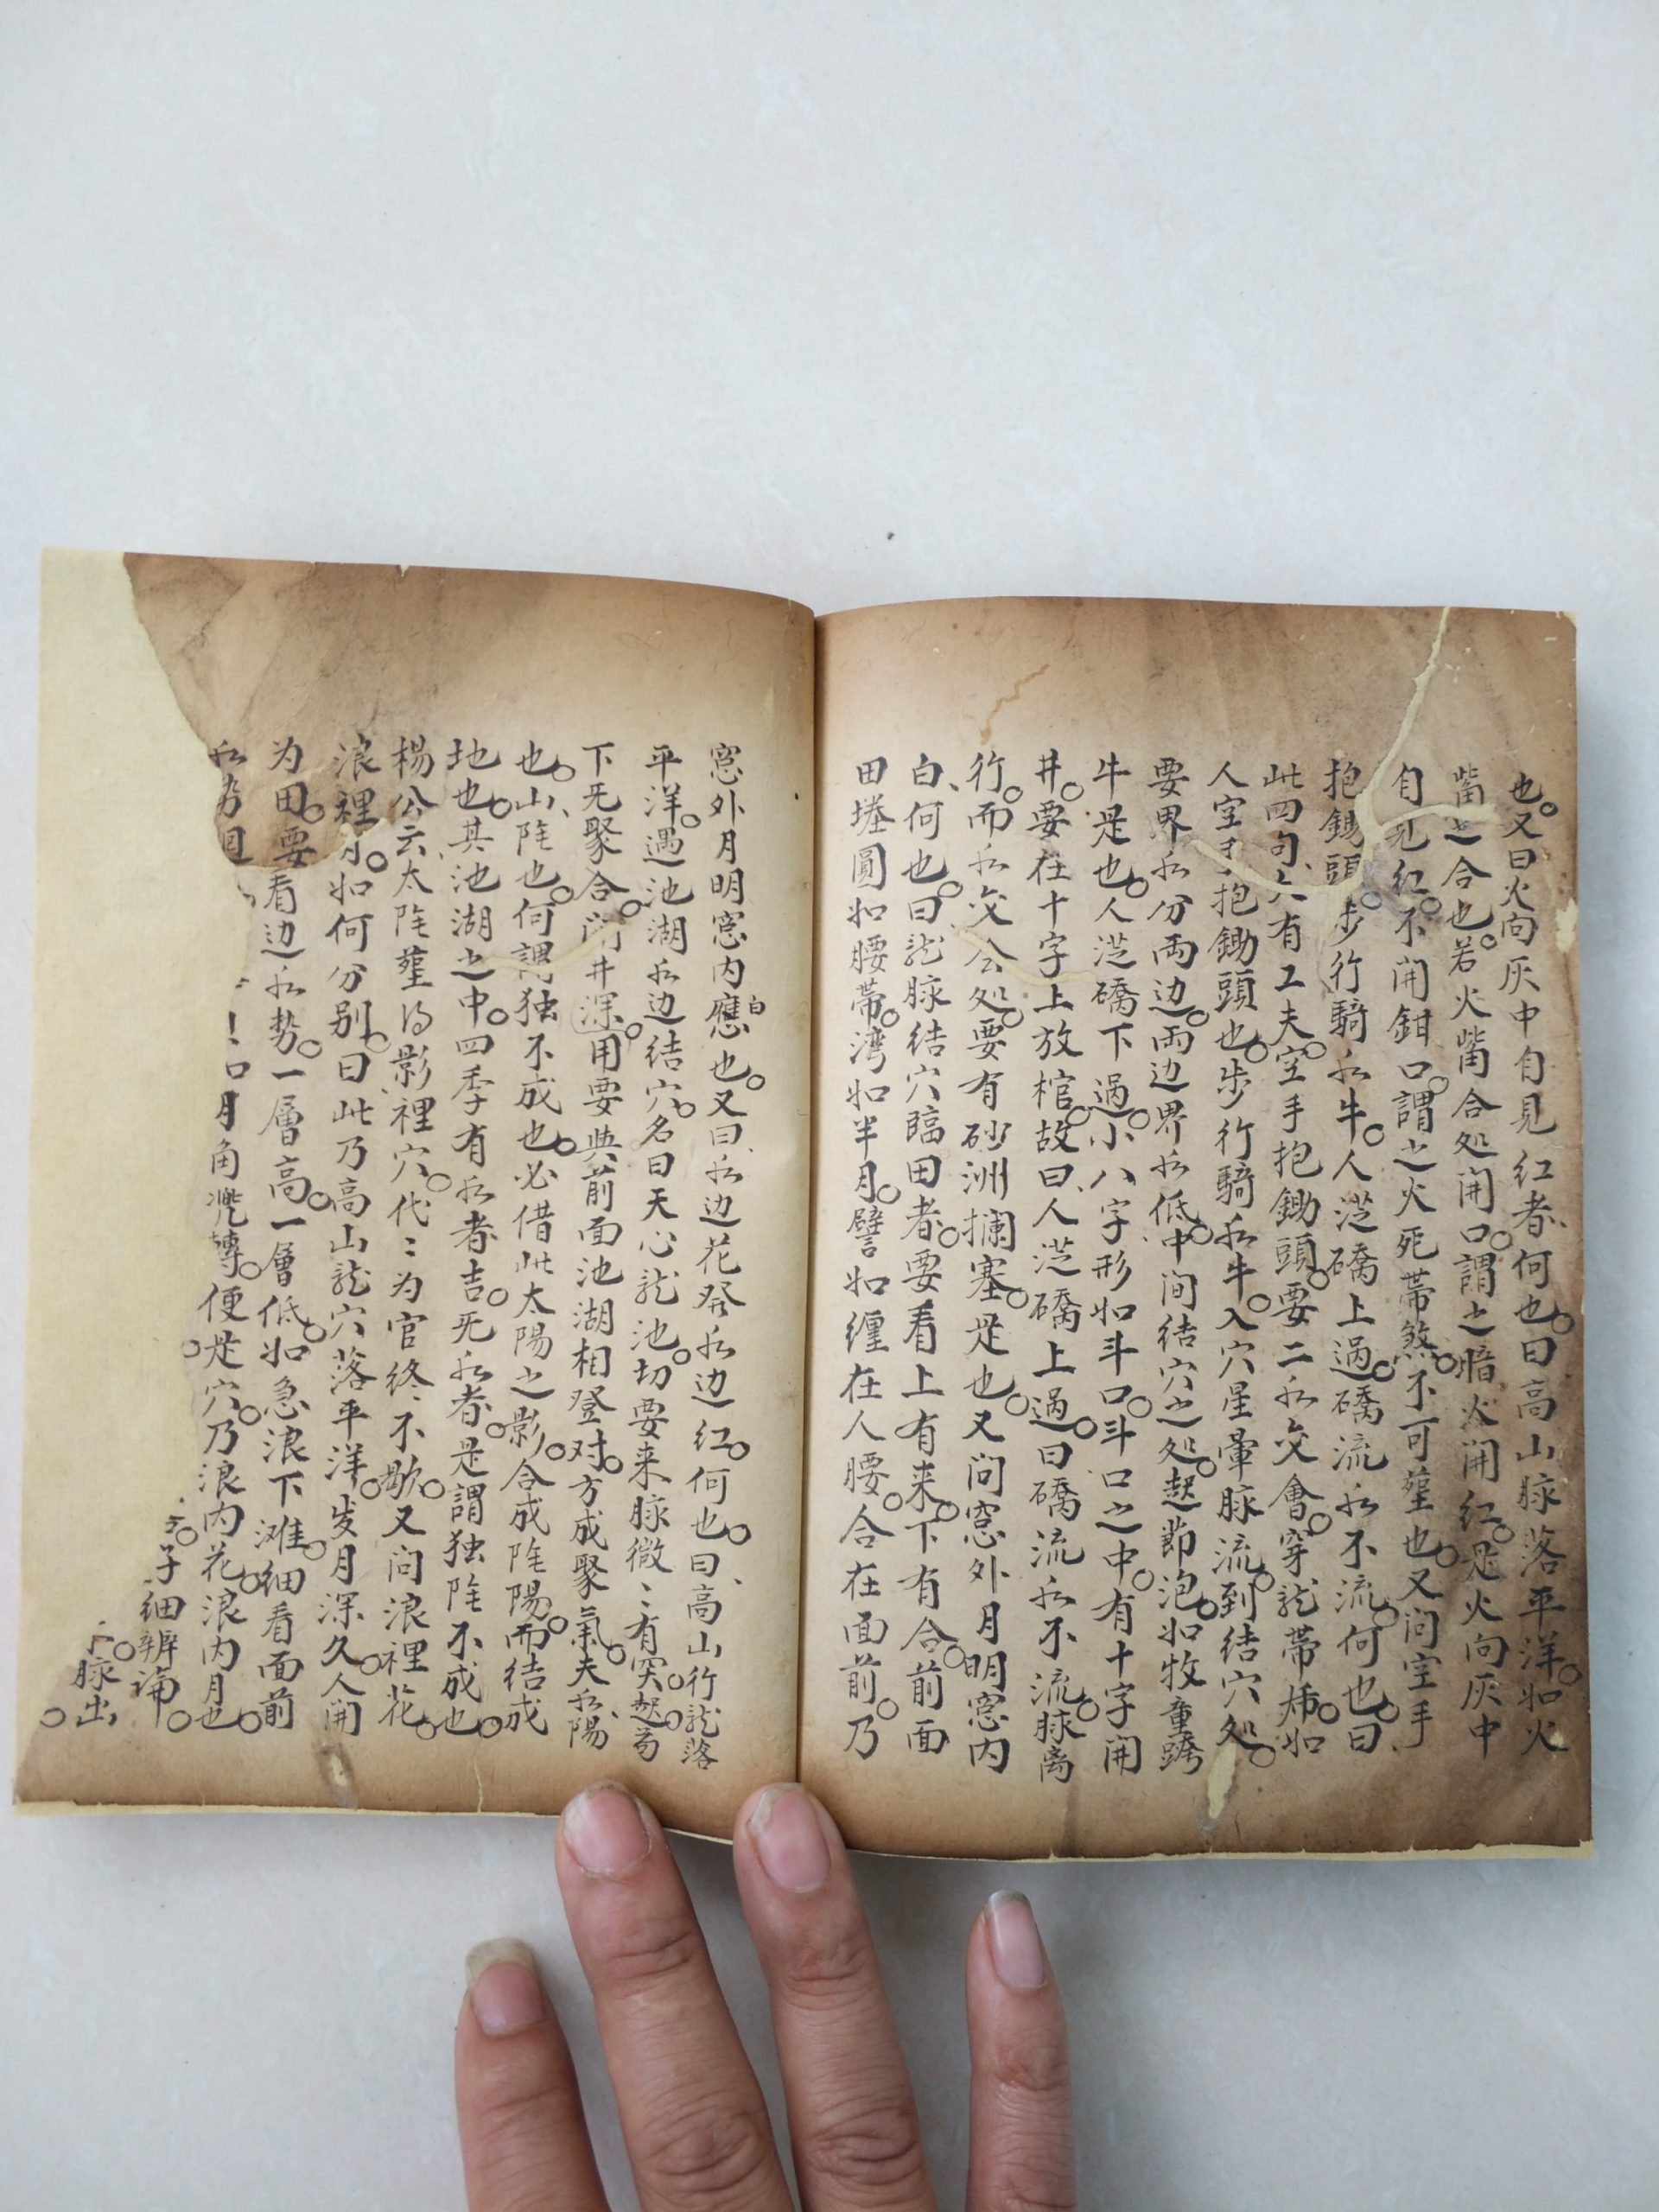 也又曰火向灰中自見红者何也曰高山脉落平洋如火
嘴之合也若火嘴合处開口謂之暗火開红是火向灰中
自見红不開鉗口謂之火死帶煞不可塟也又问空手
抱鋤頭步行騎水牛人従磽上過磽流水不流何也曰
此四句六有工夫空手抱鋤頭要二水交會穿龍帶如
人空手抱鋤頭也步行騎水牛入穴星暈脉流到结穴处
要界水分両边両边界水低中间结穴之处起節泡如牧童跨
牛是也人従磽下過小八字形如斗口斗口之中有十字開
井要在十字上放棺故曰人従磽上過曰磽流水不流脉离
行而水交会处要有砂洲攔塞是也又问窓外月明窓内
白何也曰龍脉结穴臨田者要看上有来下有合前面
田塍圓如腰帶湾如半月譬如缠在人腰合在面前乃
窓外月明窓内應白也又曰水边花發水边红何也曰高山行龍落
平洋遇池湖水边结穴名曰天心龍池切要来脉微〻有突起若
下无聚合開井深用要與前面池湖相登对方成聚氣夫水陽
也山陰也何謂独不成也必借此太陽之影合成陰陽而结成
地也其池湖之中四季有水者吉无水者是謂独陰不成也
楊公云太陰塟得影裡穴代〻为官终不歇又问浪裡花
浪裡月如何分别曰此乃高山龍穴落平洋岁月深久人開
为田要看边水势一層高一層低如急浪下滩细看面前
水势月角兠轉便是穴乃浪内花浪内月也
子细辨論
脉出